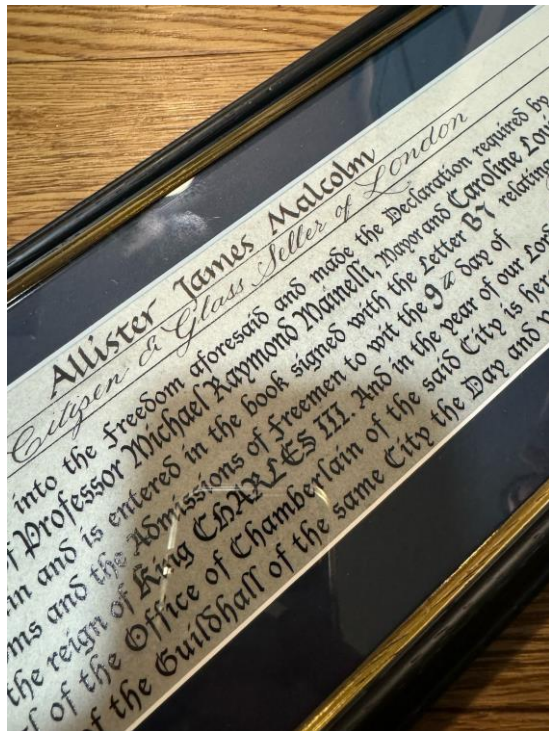 Allister James Malcolm
Citizen & Glass Seller of London
into the Freedom aforesaid and made the Declaration required by
of Professor Michael Raymond Mainelli, Mayor and Caroline Loui
and is entered in the book signed with the Letter B7 relating
and the Admissions of Freemen to wit the 9th day of
the reign of King CHARLES III. And in the year of our Lord
of the Office of Chamberlain of the said City is her
of the Guildhall of the same City the Day and